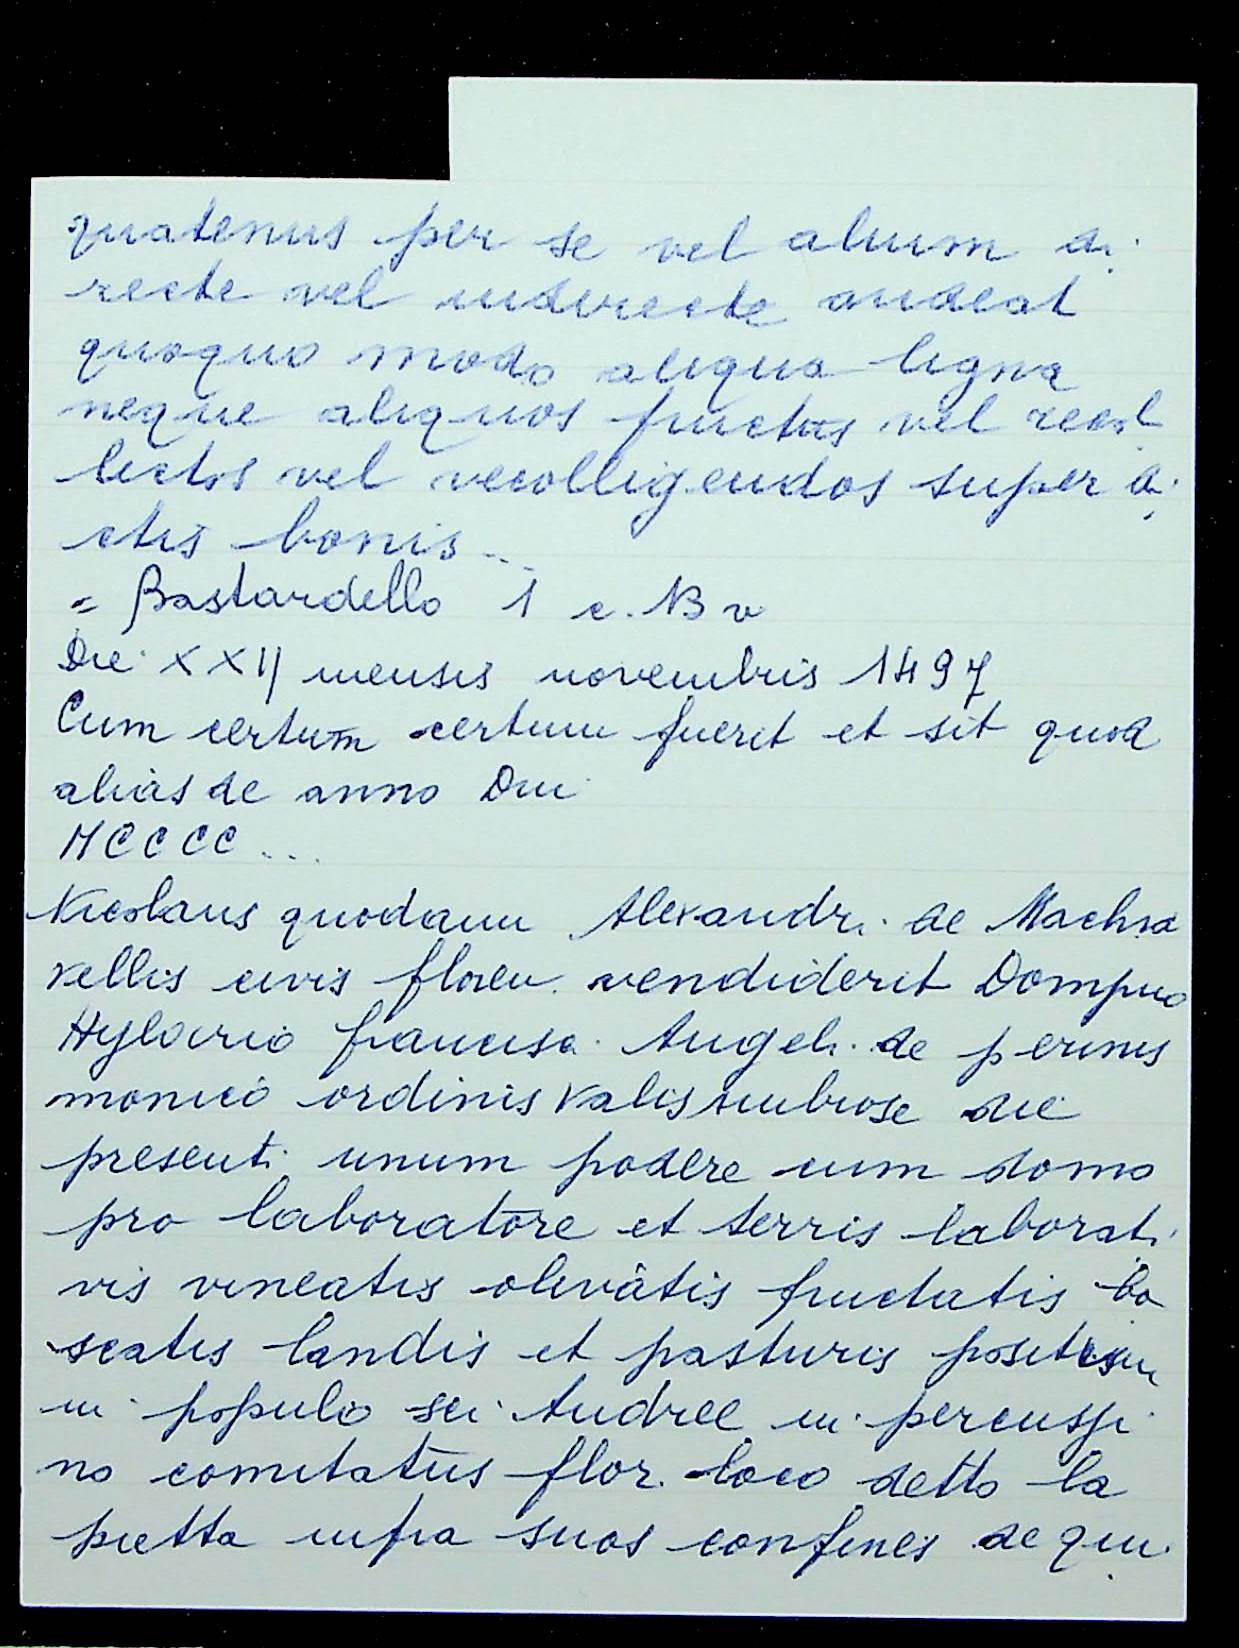 quatenus per se vel alium di
recte vel indirecte audeat
quoquo modo aliqua ligna
neque aliquos fructus vel recol
lectos vel recolligendos super di
ctis bonis...
= Bastardello 1 c. 13 v
Die XXII mensis novembris 1497
Cum certum certum fuerit et sit quod
alias de anno Dni
MCCCC...
Nicolaus quodam Alexandri de Machia
vellis civis floren. vendiderit Dompno
Hylario francisci Angeli de perinis
monico ordinis Valisumbrose die
presenti unum podere cum domo
pro laboratore et terris laborati
vis vineatis olivatis fructatis bo
scatis landis et pasturis positis
in populo sci Andree in percussi
no comitatus flor. loco detto la
pietta infra suos confines de qui